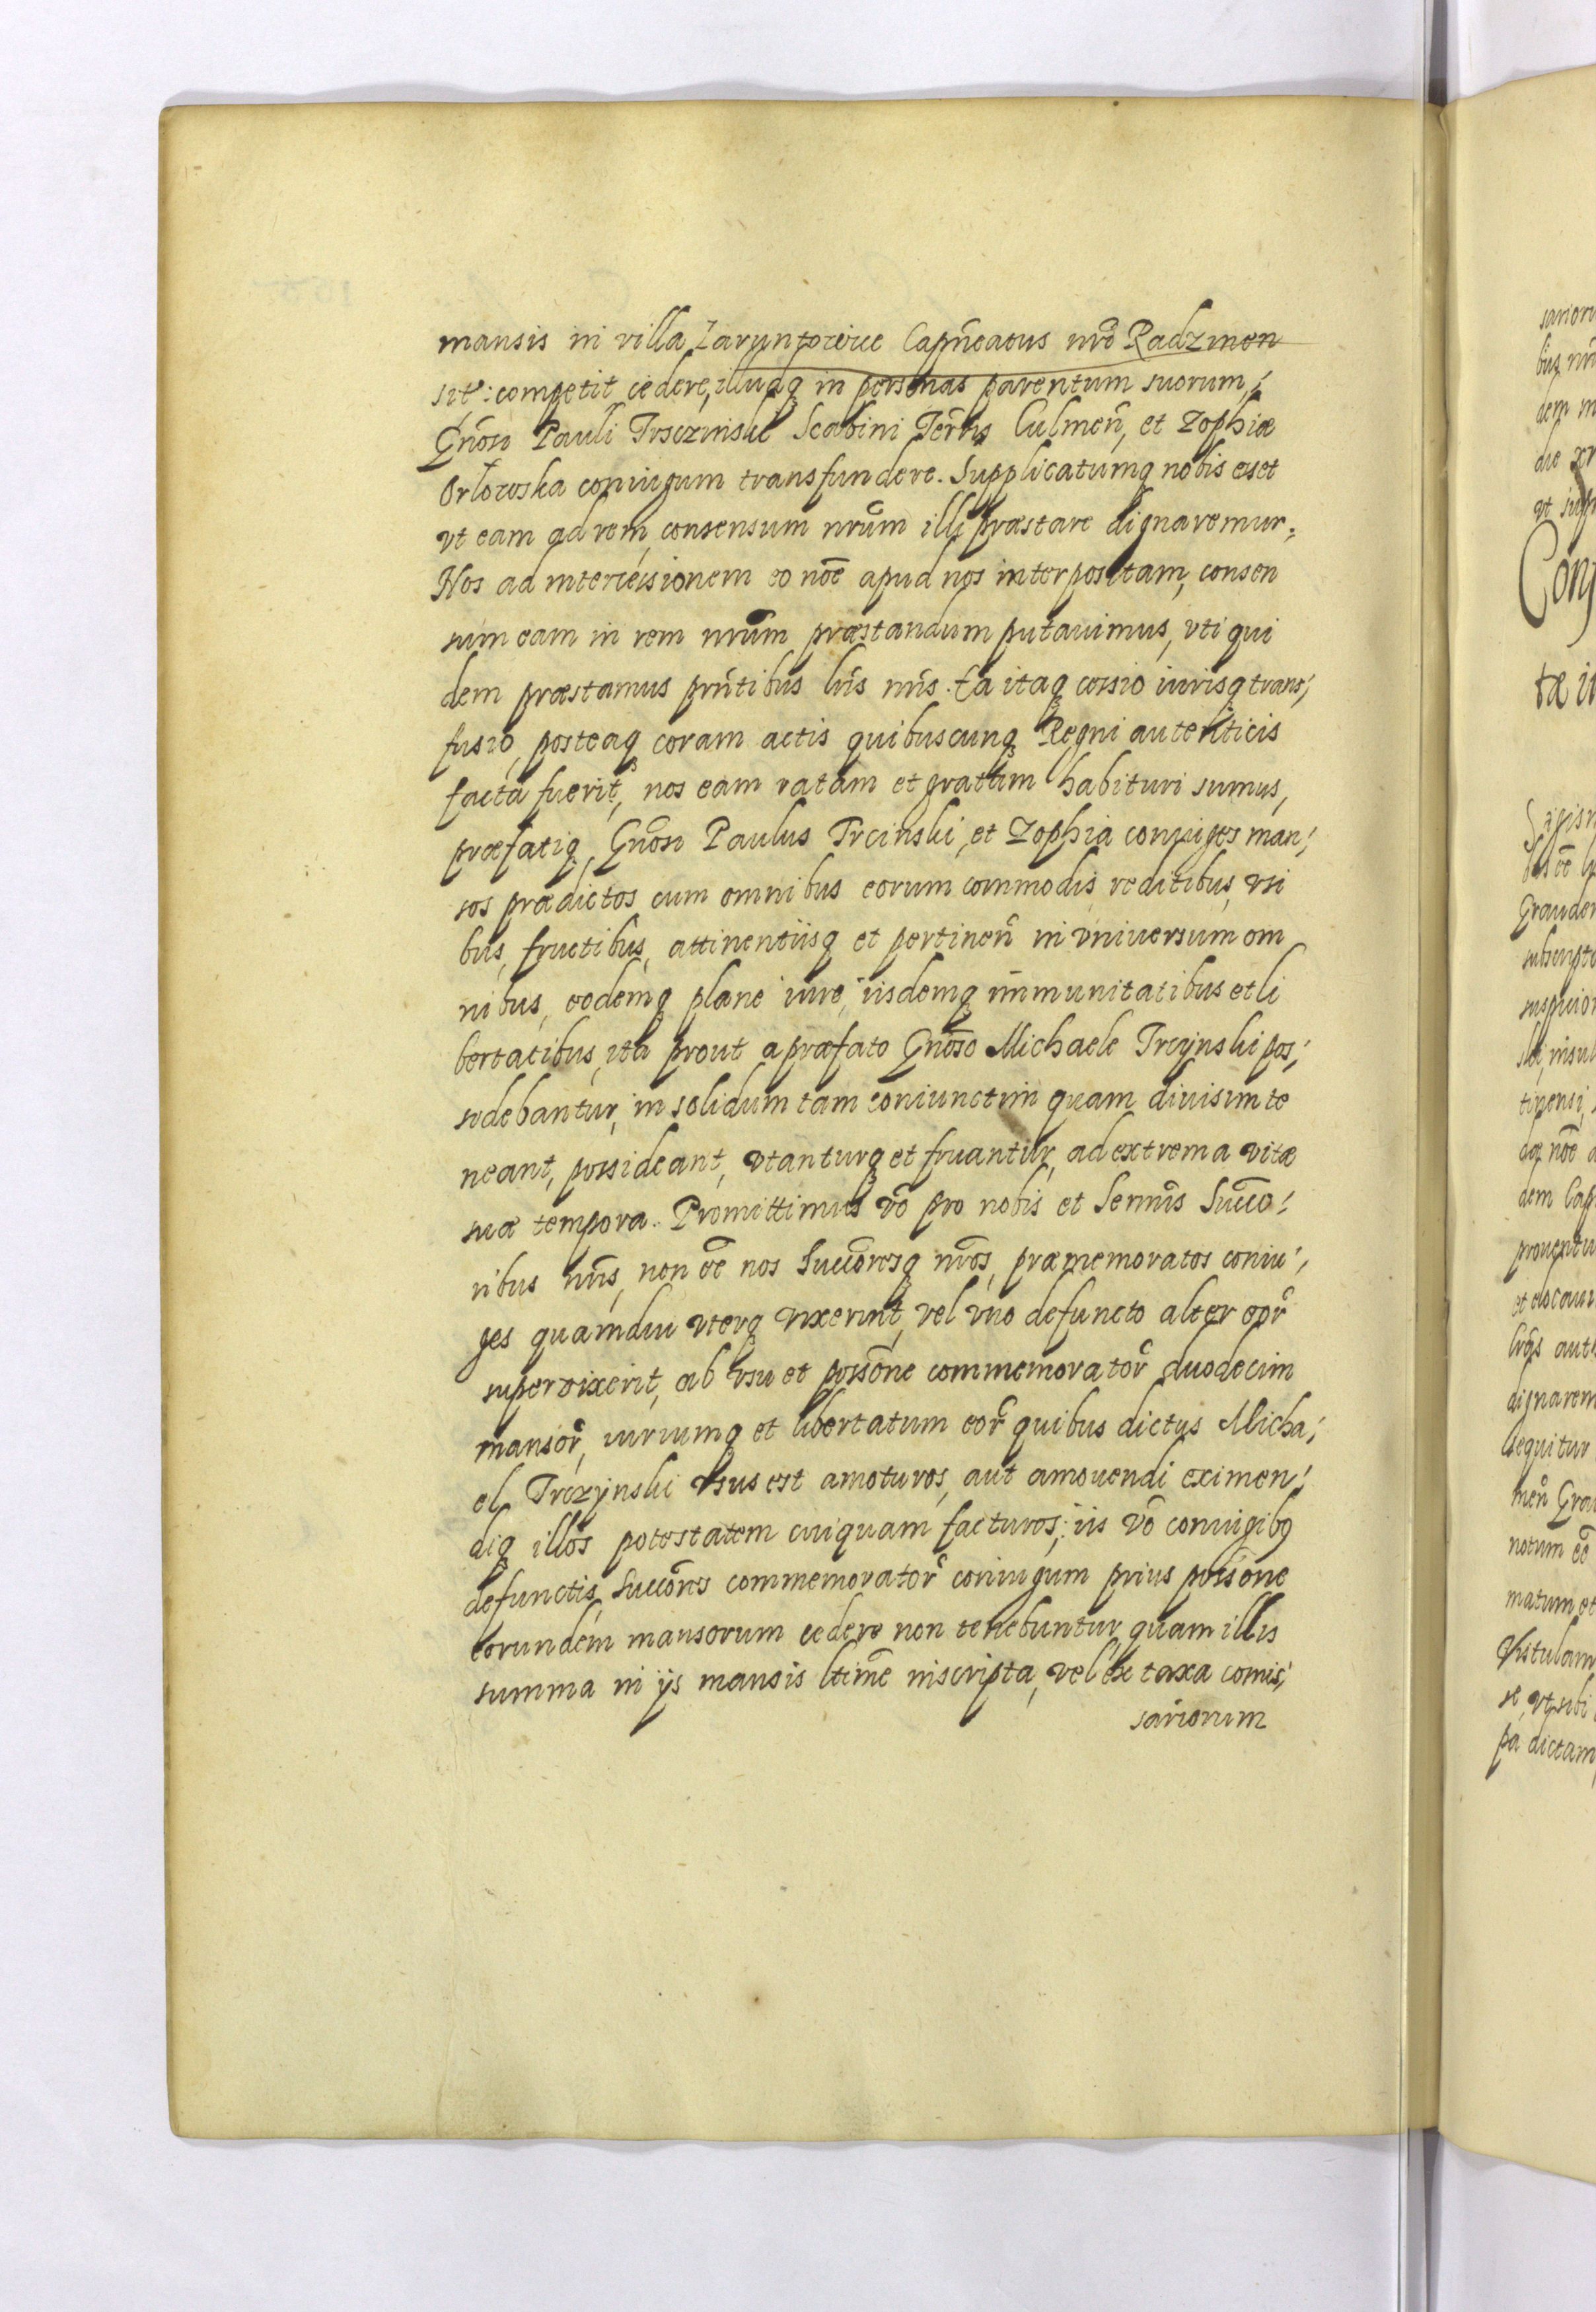 mansis in villa Zaruntowice Capneatus nrō Radzinen
sit: competit cedere, illudq in personas parentum suorum,
Gnōsi Pauli Trsczinski Scabini Terris Culmen̄, et Zophiæ
Orlowska coniugum transfundere. Supplicatumq nobis esset
vt eam ad rem, consensum nrūm illi præstare dignaremur.
Nos ad intercessionem eo noē apud nos interpositam, consen
sum eam in rem nrūm præstandum putauimus, vti qui
dem præstamus prn̄tibus lrīs nrīs. Ea itaq cessio iurisq trans,
fusio, posteaq coram actis quibuscunq Regni autenticis
facta fuerit, nos eam ratam et gratam habituri sumus,
præfatiq Gnōsi Paulus Trcinski, et Zophia coniuges man,
sos prædictos cum omnibus eorum commodis, reditibus, vsi
bus, fructibus, attinentiisq et pertinen̄ in vniuersum om
nibus, eodemq plane iure, iisdemq immunitatibus et li
bertatibus, ita prout a præfato Gnōso Michaele Trcynski pos,
sidebantur, in solidum tam coniunctim quam diuisim te
neant, possideant, vtanturq et fruantur, ad extrema vitæ
suæ tempora. Promittimus vō pro nobis et Sermīs Succō,
ribus nrīs, non eē nos Succōresq nrōs, præmemoratos coniu,
ges quamdiu vterq vixerint, vel vno defuncto alter eor̄
superuixerit, ab vsu et possōne commemorator̄ duodecim
mansor̄, iuriumq et libertatum eor̄ quibus dictus Micha,
el Trczynski vsus est amoturos, aut amouendi eximen,
diq illos potestatem cuiquam facturos; iis vō coniugibus
defunctis, Succōres commemorator̄ coniugum prius possōne
eorundem mansorum cedere non tenebuntur, quam illis
summa in ijs mansis ltīme inscripta, vel ex taxa comis,
sariorum